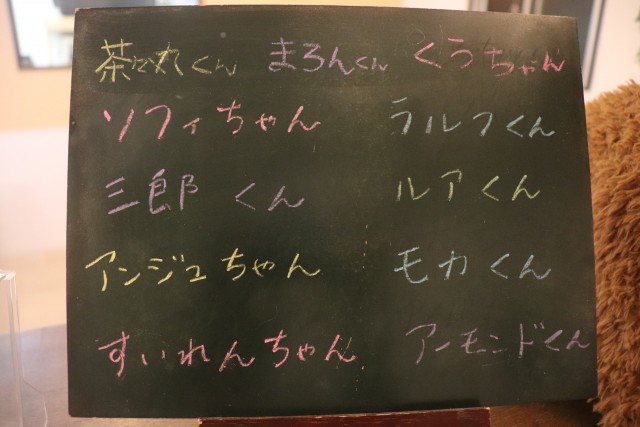 茶々丸くん まろんくん くうちゃん
ソフィちゃん ラルフくん
三郎くん ルアくん
アンジュちゃん モカくん
すいれんちゃん アーモンドくん